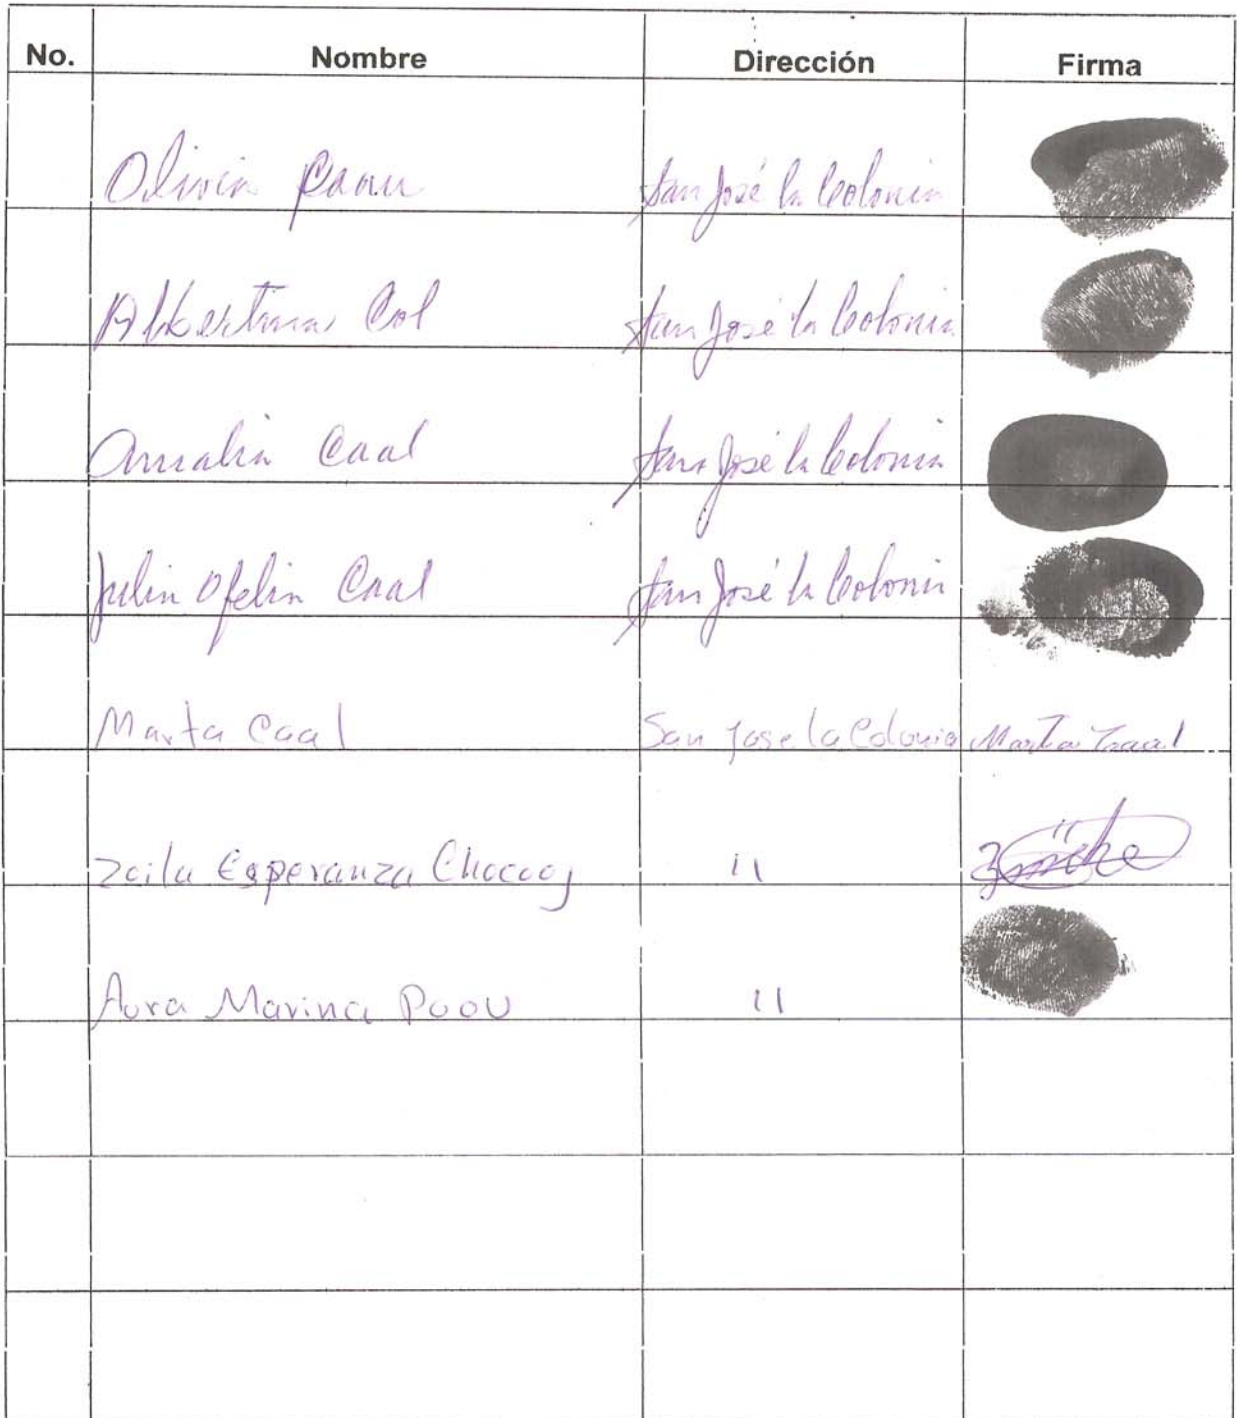 No. Nombre Dirección Firma
Olivia Paau San José la Colonia
Albertina Col San José la Colonia
Amalia Caal San José la Colonia
Julia Ofelia Caal San José la Colonia
Marta Caal San Jose la Colonia Marta Caaal
Zoila Esperanza Chocooj 11
Aura Marina Poou 11